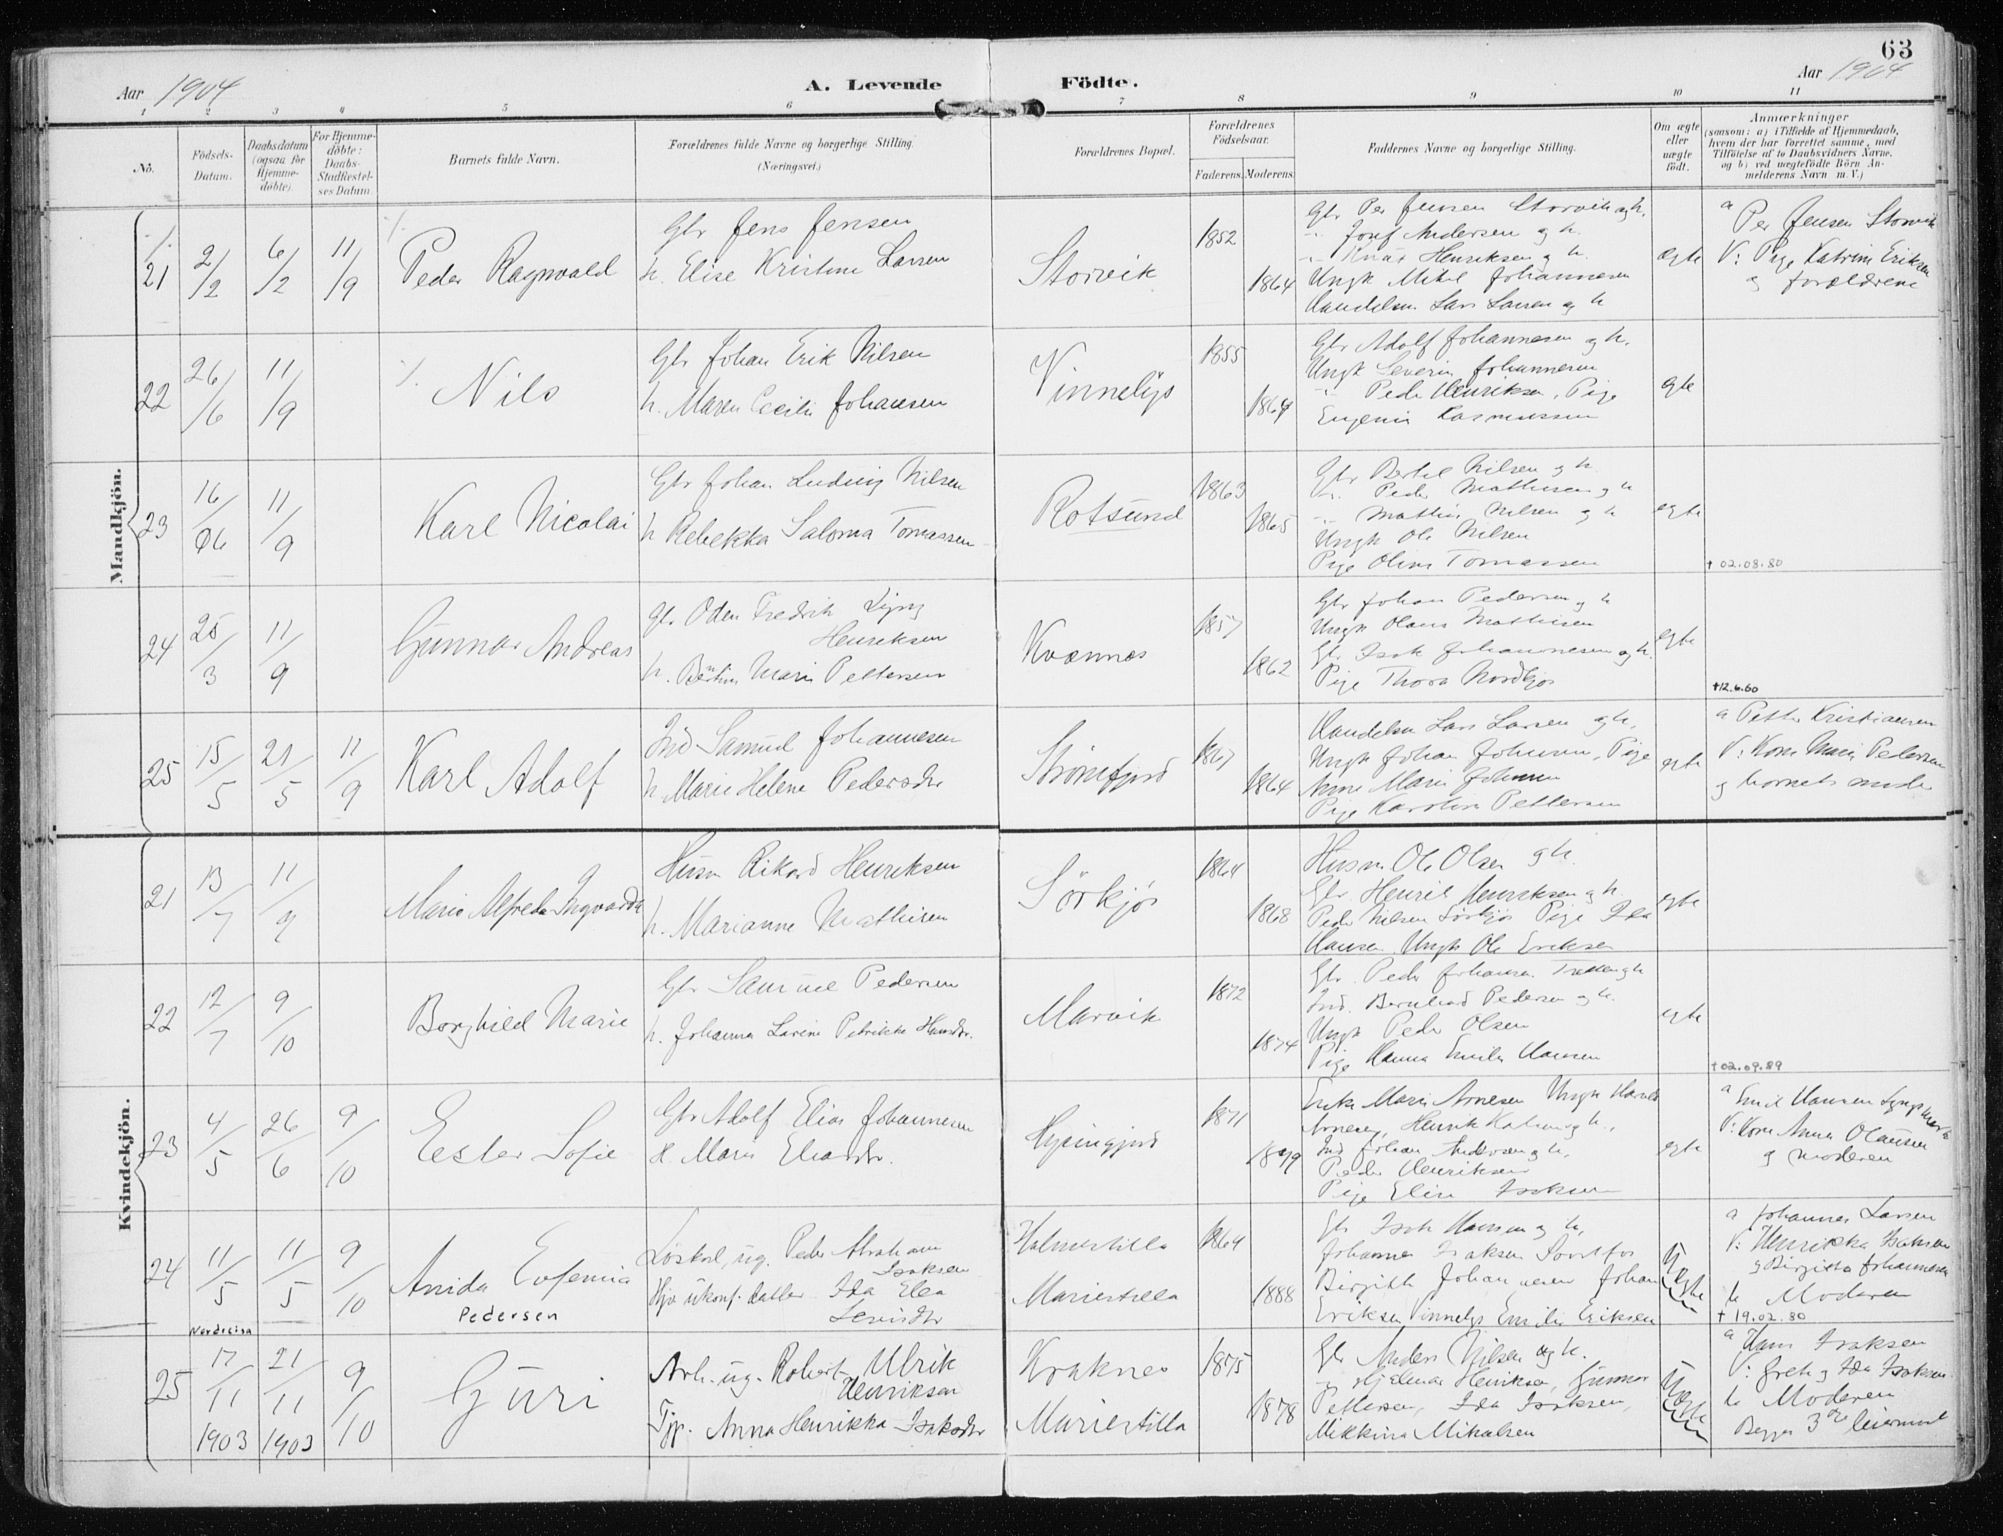 63
Aar 1904
A. Levende
Födte.
Aar 1904
1 2 3 4 5 6 7 8 9 10 11
No.
Födsels-
Datum.
Daabsdatum
(ogsaa for
Hjemme-
döbte).
For Hjemme-
döbte:
Daabs-
Stadfæstel-
ses Datum.
Barnets fulde Navn.
Forældrenes fulde Navne og borgerlige Stilling.
(Næringsvei.)
Forældrenes Bopæl.
Forældrenes
Födselsaar.
Faderens.
Moderens.
Faddernes Navne og borgerlige Stilling.
Om ægte
eller
uægte
födt.
Anmærkninger
(saasom: a) i Tilfælde af Hjemmedaab,
hvem der har forrettet samme, med
Tilföielse af to Daabsvidners Navne,
og b) ved uægtefödte Börn An-
melderens Navn m. V.)
Mandkjön.
21 2/2 6/2 11/9
Peder Ragnvald
Gbr Jens Jensen
h. Elise Kristine Larsen
Storvik
1852
1864
Gbr Per Jensen Storvik og h.
" Josef Andersen og h.
" Knut Henriksen og h.
Ungk Mikel Johannesen
Handelsm Lars Larsen og h
ægte
a Per Jensen Storvik
V: Pige Katrine Eriksen
og forældrene
22 26/6 11/9
Nils
Gbr Johan Erik Nilsen
h. Maren Cecilie Johansen
Vinnelys
1855
1864
Gbr Adolf Johannesen og h.
Ungk Severin Johannesen
" Peder Henriksen, Pige
Eugenie Rasmussen
egte
23 16/06 11/9
Karl Nicolai
Gbr Johan Ludvig Nilsen
h Rebekka Saloma Tomassen
Rotsund
1863
1865
Gbr Bertel Nilsen og h.
" Peder Mathisen og h
" Mathis Nilsen og h
Ungk Ole Nilsen
Pige Oline Tomassen
egte
† 02.08.80
24 25/3 11/9
Gunnar Andreas
Gbr Oden Fredrik Lyng
Henriksen
h. Bentine Marie Pettersen
Kvænnes
1857
1862
Gbr Johan Pedersen og h
Ungk Olaus Mathisen
Gbr Isak Johannesen og h.
Pige Thora Nordkjos
egte
†12.6.60
25 15/5 21/5 11/9
Karl Adolf
Ind Samuel Johannesen
h Marie Helene Pedersdtr
Strømfjord
1867
1864
Handelsm Lars Larsen og h,
Ungk Johan Johnsen, Pige
Anne Marie Johnsen
Pige Karoline Pettersen
egte
a Petter Kristiansen
V: Kone Marie Pedersen
og barnets moder
Kvindekjön.
21 13/7 11/9
Marie Alfreda Ingvarda
Husm Rikard Henriksen
h. Marianne Mathisen
Sørkjos
1864
1868
Husm Ole Olsen og h.
Gbr Henrik Henriksen og h.
Peder Nilsen Sørkjos Pige Ida
Hansen Ungk Ole Eriksen
egte
22 12/7 9/10
Borghild Marie
Gbr Samuel Pedersen
h. Johanna Lavine Petrikke Hansdtr.
Marvik
1872
1874
Gbr. Peder Johansen Tretten og h
Ind. Bernhard Pedersen og h.
Ungk Peder Olsen
Pige Hanna Emilie Hansen
egte
† 02.09.89
23 4/5 26/6 9/10
Ester Sofie
Gbr Adolf Elias Johannesen
H. Marie Eliasdtr.
1871
1879
Enke Marie Arnesen Ungk Harald
Arnesen, Henrik og h.,
Ind Johan Andersen og h,
Peder Henriksen
Pige Elise Isaksen
egte
a Emil Hansen
V: Kone Anna Olausen
og moderen
24 11/5 11/5 9/10
Anida Eufemia
Pedersen
Løskarl, ug. Peder Abraham
Isaksen
ukonf. datter Ida Elea
Levisdtr
Holmestilla
Mariestilla
1864
1888
Gbr Isak Hansen og h,
Johannes Isaksen Sorstfos
Birgitte Johannesen Johan
Eriksen Vinnelys Emilie Eriksen
Uægte
a Johannes Larsen
V: Henrikka Isaksen
og Birgitta Johannesen
b Moderen
† 19.02.80
Nordreisa
25 17/11 1903 21/11 1903 9/10
Guri
Arb. ug. Robert Ulrik
Henriksen
Tjp. Anna Henrikka Isaksdtr
Kraknes
Mariestilla
1875
1878
Gbr Anders Nilsen og h.
" Hjelmar Henriksen, Gunnar
Pettersen, Ida Isaksen,
Mikkine Mikalsen
Uægte
a Hans Isaksen
V: Grete og Ida Isaksen
b Moderen
Begges 3die leiermaal